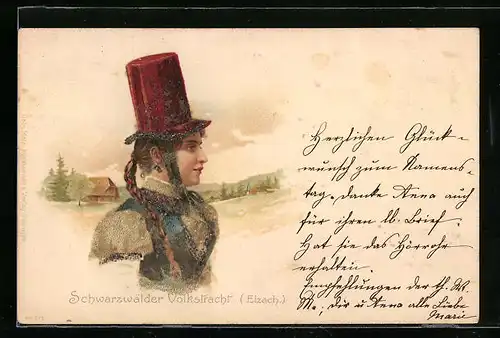 Herzlichen Glück-
wunsch zum Namens-
tag. Danke Anna auch
für ihren lb. Brief.
Hat sie das Hörrohr
erhalten.
Empfehlungen der th. M.
M., Dir u Anna alle Liebe
Marie
Schwarzwälder Volkstracht (Elzach.)